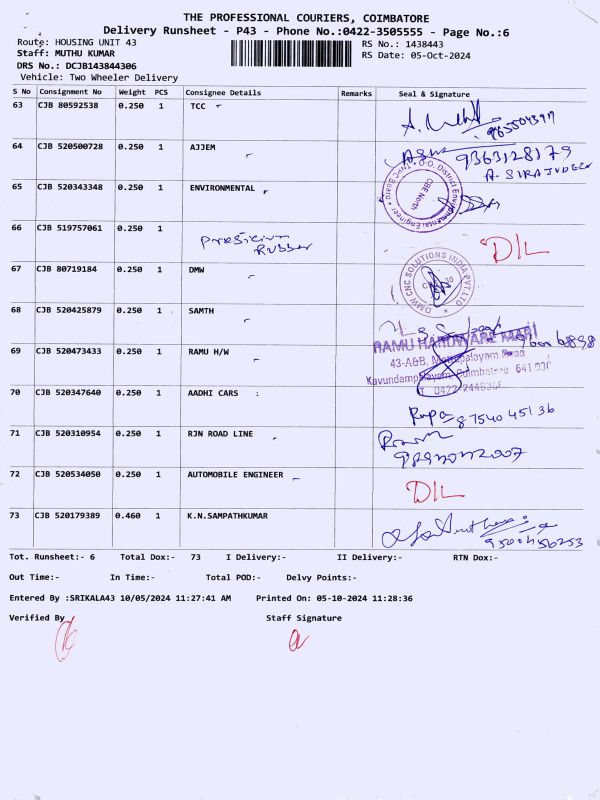 THE PROFESSIONAL COURIERS, COIMBATORE
Delivery Runsheet - P43 - Phone No.:0422-3505555 - Page No.:6
Route: HOUSING UNIT 43 RS No.: 1438443
Staff: MUTHU KUMAR RS Date: 05-Oct-2024
DRS No.: DCJB143844306
Vehicle: Two Wheeler Delivery
S No Consignment No Weight PCS Consignee Details Remarks Seal & Signature
63 CJB 80592538 0.250 1 TCC
64 CJB 520500728 0.250 1 AJJEM
9363128179
A. SIRAJUDEEN
65 CJB 520343348 0.250 1 ENVIRONMENTAL
CBE North
66 CJB 519757061 0.250 1 D/L
Rubber
67 CJB 80719184 0.250 1 DMW
DMW CNC SOLUTIONS INDIA PVT. LTD
68 CJB 520425879 0.250 1 SAMTH
RAMU HARDWARE MART
69 CJB 520473433 0.250 1 RAMU H/W
43-A&B, Road
Kavundampalayam, Coimbatore 641 030
70 CJB 520347640 0.250 1 AADHI CARS
Rupa 87540 45136
71 CJB 520310954 0.250 1 RJN ROAD LINE
72 CJB 520534050 0.250 1 AUTOMOBILE ENGINEER
D/L
73 CJB 520179389 0.460 1 K.N.SAMPATHKUMAR
Tot. Runsheet:- 6 Total Dox:- 73 I Delivery:- II Delivery:- RTN Dox:-
Out Time:- In Time:- Total POD:- Delvy Points:-
Entered By :SRIKALA43 10/05/2024 11:27:41 AM Printed On: 05-10-2024 11:28:36
Verified By Staff Signature